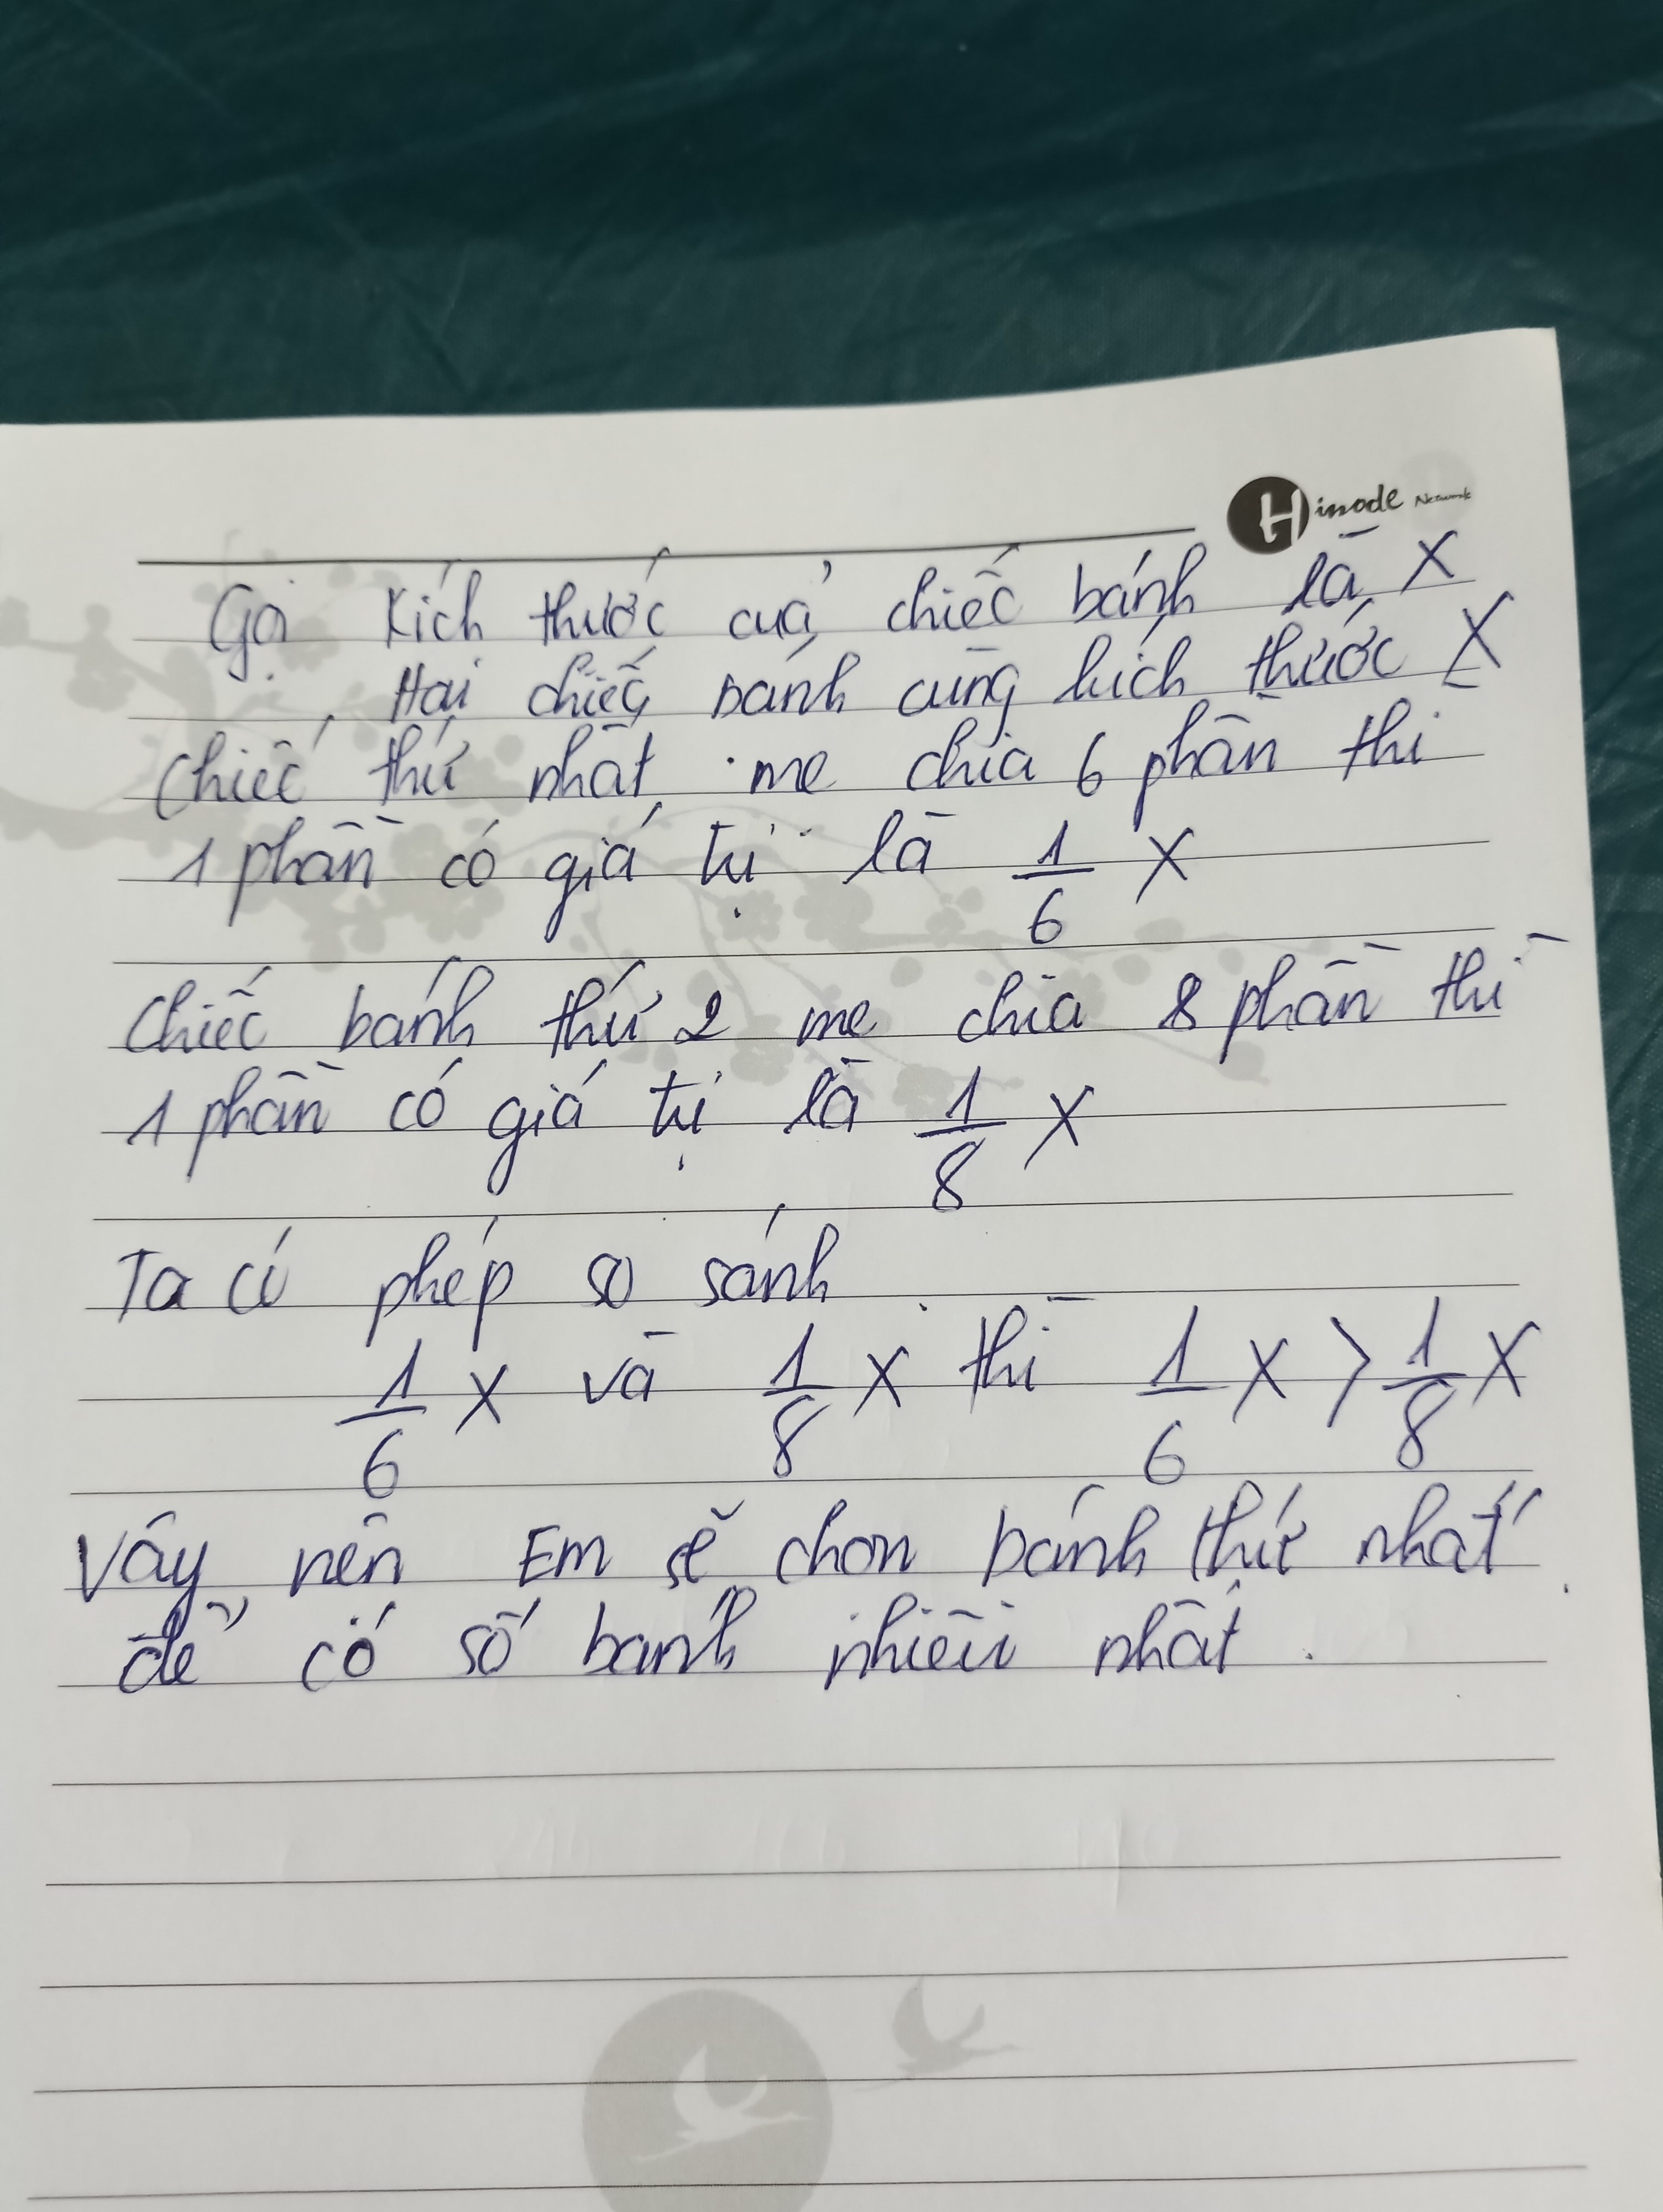 Hinode Network
Gọi kích thước của chiếc bánh là X
Hai chiếc bánh cùng kích thước X
Chiếc thứ nhất mẹ chia 6 phần thì
1 phần có giá trị là 1/6 X
Chiếc bánh thứ 2 mẹ chia 8 phần thì
1 phần có giá trị là 1/8 X
Ta có phép so sánh
1/6 X và 1/8 X thì 1/6 X > 1/8 X
Vậy nên Em sẽ chọn bánh thứ nhất
để có số bánh nhiều nhất.